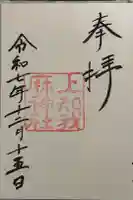 奉拝
上知我麻神社
令和七年十二月十五日